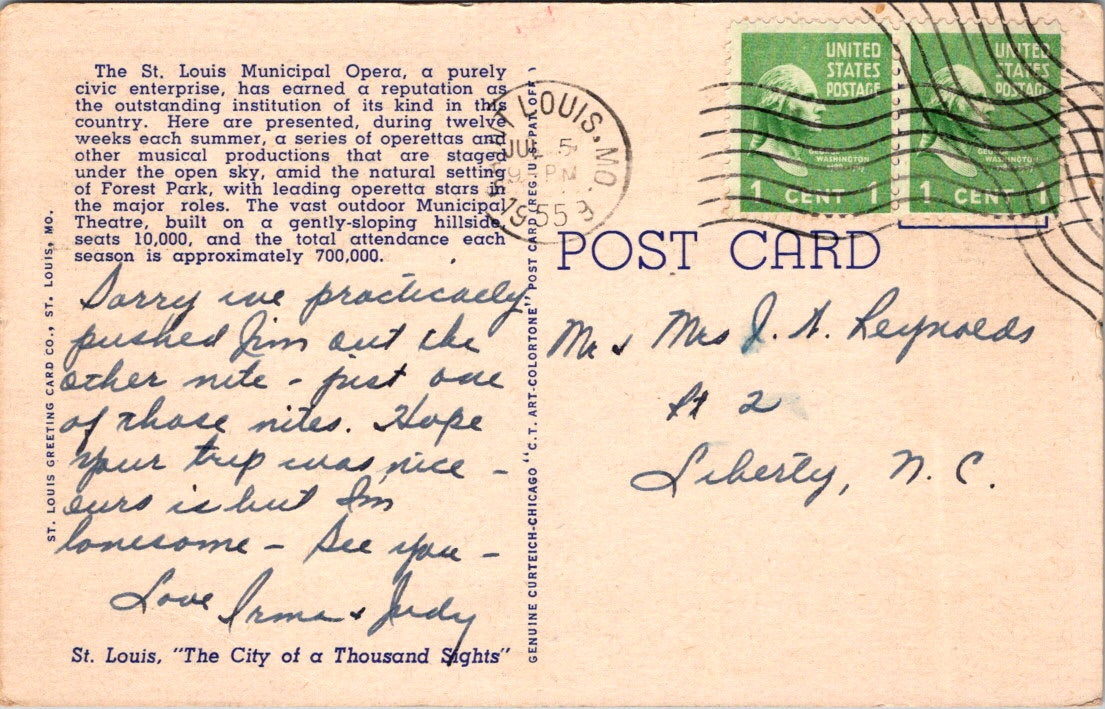 The St. Louis Municipal Opera, a purely
civic enterprise, has earned a reputation as
the outstanding institution of its kind in this
country. Here are presented, during twelve
weeks each summer, a series of operettas and
other musical productions that are staged
under the open sky, amid the natural setting
of Forest Park, with leading operetta stars in
the major roles. The vast outdoor Municipal
Theatre, built on a gently-sloping hillside,
seats 10,000, and the total attendance each
season is approximately 700,000.
Sorry we practically
pushed Jim out the
other nite - just one
of those nites. Hope
your trip was nice -
ours is but I'm
lonesome - See you -
Love Irma & Judy
St. Louis, "The City of a Thousand Sights"
ST. LOUIS GREETING CARD CO., ST. LOUIS, MO.
GENUINE CURTEICH-CHICAGO "C.T. ART-COLORTONE" POST CARD (REG. U.S. PAT. OFF.)
LOUIS, MO.
JUL 5
PM
1955
UNITED
STATES
POSTAGE
GEORGE
WASHINGTON
1 CENT 1
UNITED
STATES
POSTAGE
GEORGE
WASHINGTON
1 CENT 1
POST CARD
Mr & Mrs J. A. Reynolds
Rt 2
Liberty, N. C.